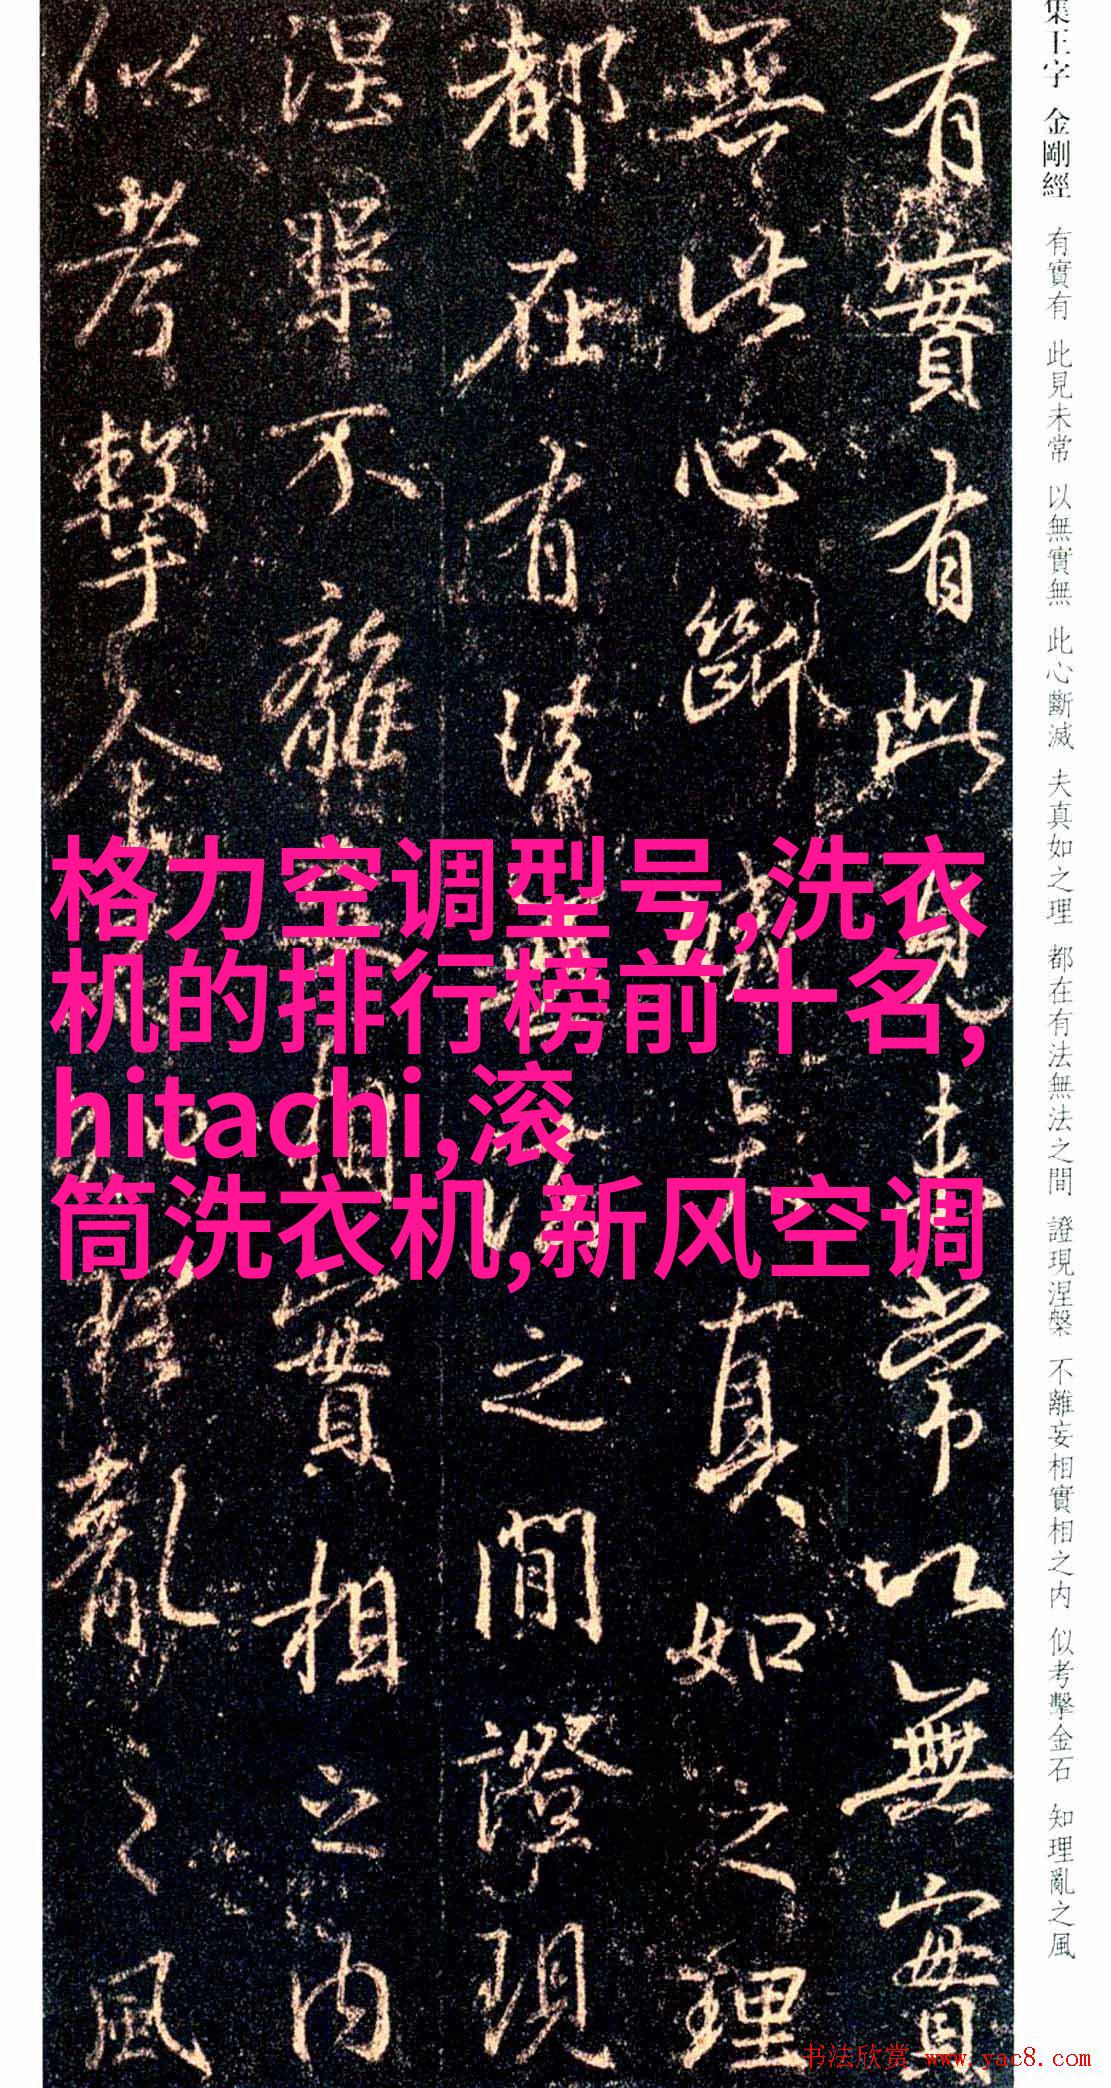 集王字 金剛經 有實有 此見未常 以無實無 此心斷滅 夫真如之理 都在有法無法之間 證現涅槃 不離妄相實相之内 似考擊金石 知理亂之風
有實有此見未常以無實
無此心斷滅夫真如之理
都在有法無法之間證現
涅槃不離妄相實相之内
似考擊金石知理亂之風
格力空调型号,洗衣
机的排行榜前十名,
hitachi,滚
筒洗衣机,新风空调
书法欣赏 www.yac8.com